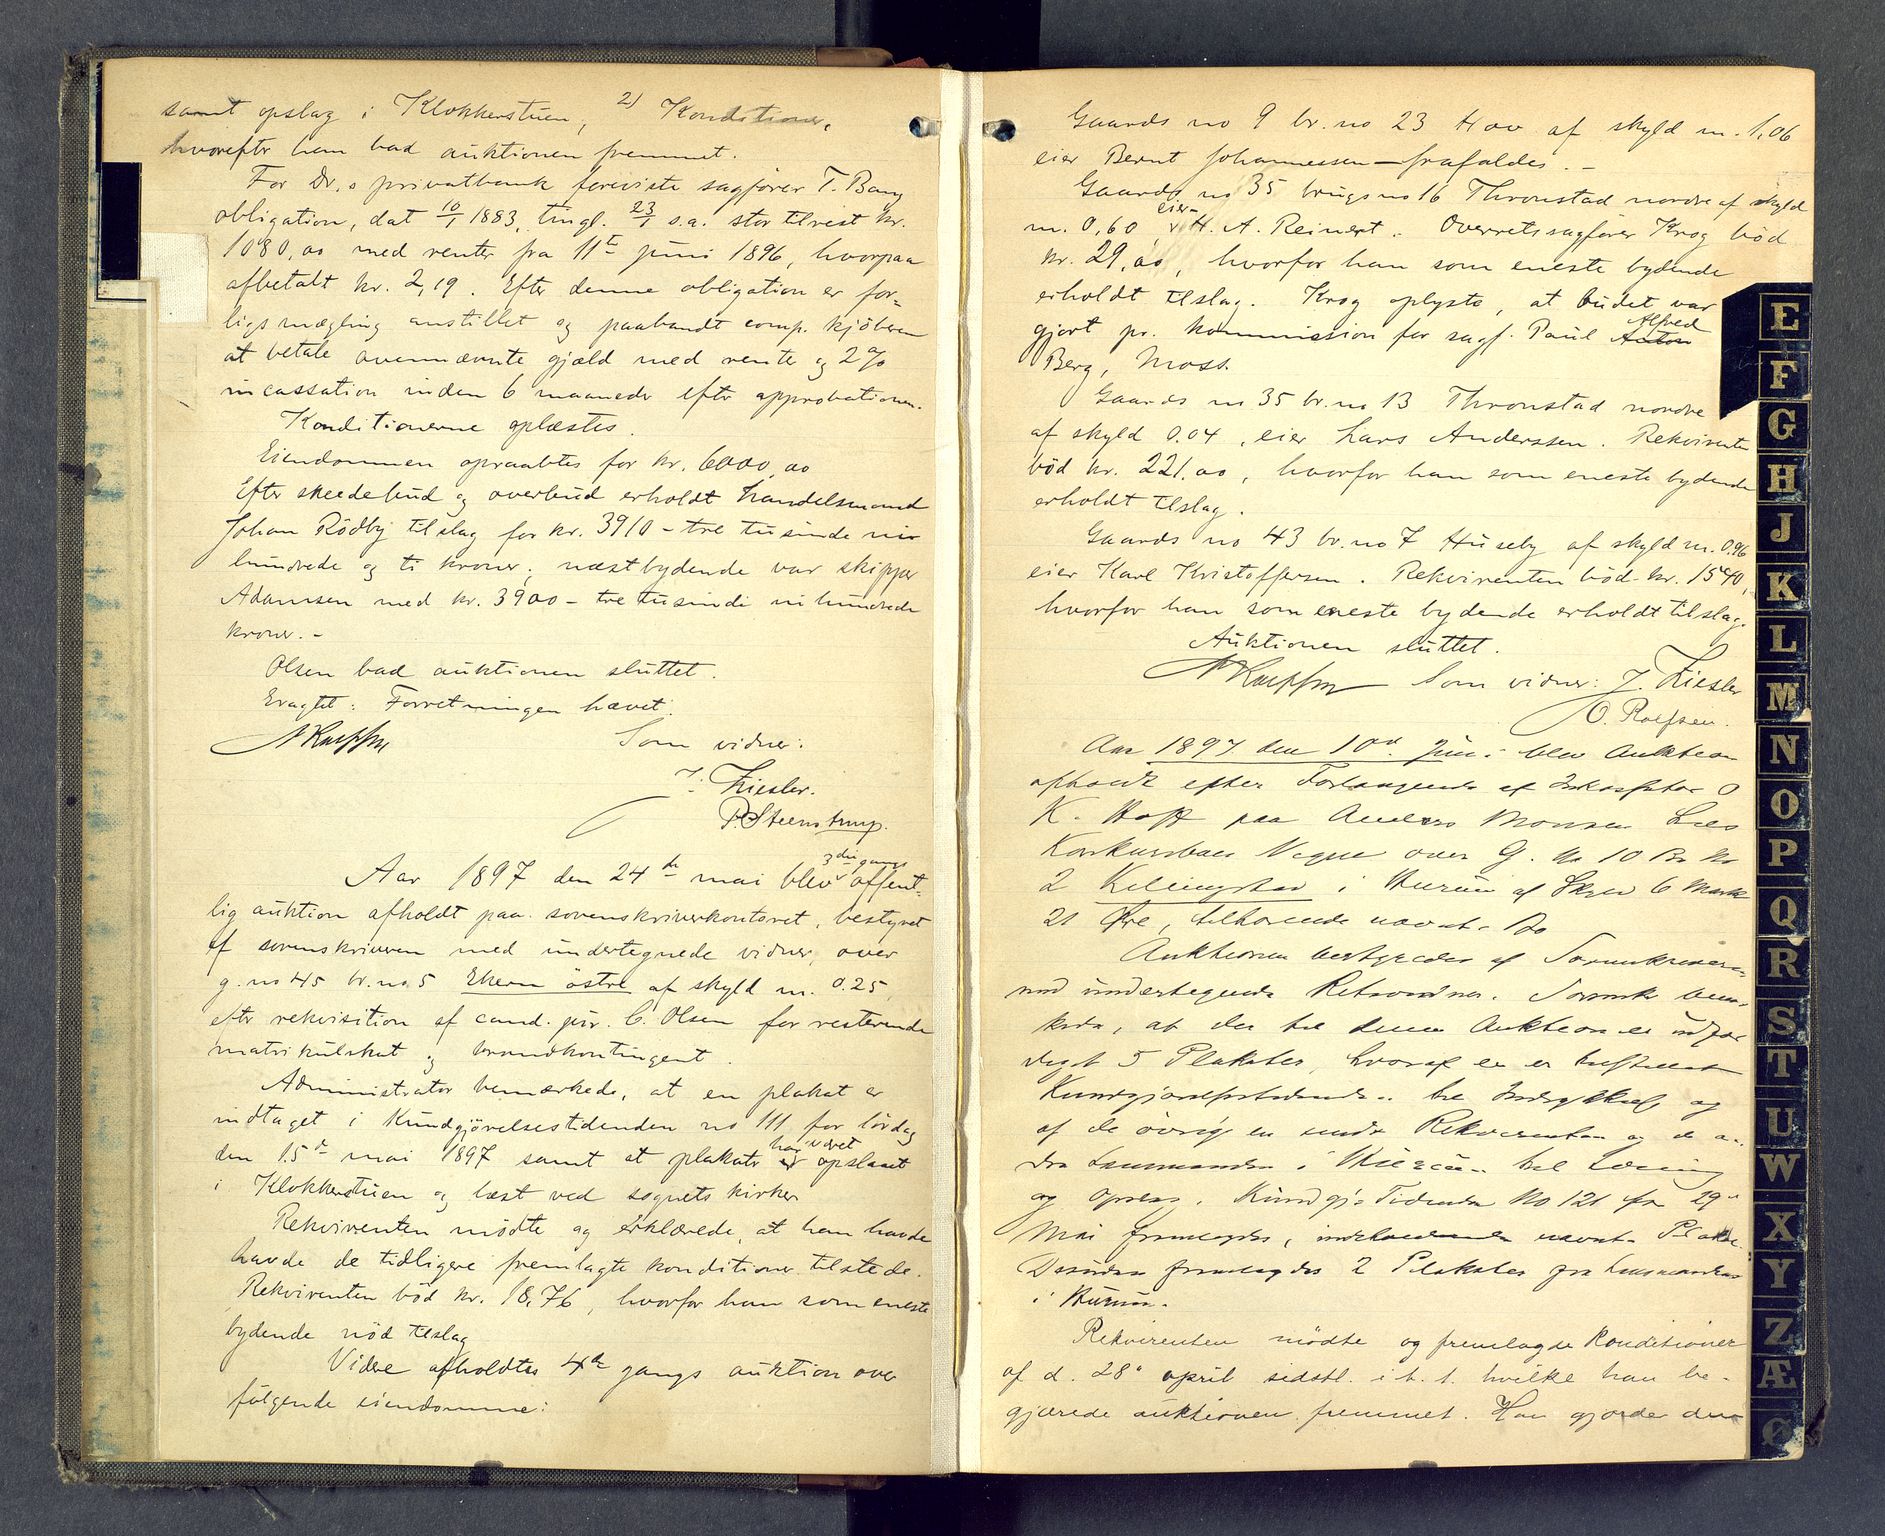 samt opslag i Klokkerstuen, 2) Konditioner,
hvorefter han bad auktionen fremmet.
For Dr.s privatbank foreviste sagfører T. Bang
obligation, dat 10/1 1883, tingl. 23/1 s.a. stor tilrest kr.
1080,00 med renter fra 11te juni 1896, hvorpaa
afbetalt kr. 2,19. Efter denne obligation er for=
ligsmægling anstillet og paabandt comp. kjöberen
at betale ovennævnte gjæld med rente og 2 %
incassation inden 6 maaneder efter approbationen.
Konditionerne oplæstes.
Eiendommen opraabtes for kr. 6000,00
Efter skeede bud og overbud erholdt handelsmand
Johan Rödby tilslag for kr. 3910 - tre tusinde ni
hundrede og ti kroner; næstbydende var skipper
Adamsen med kr. 3900 - tre tusinde ni hundrede
kroner. -
Olsen bad auktionen sluttet.
Eragtet: Forretningen hævet.
Som vidner:
J. Ziesler.
P. Steenstrup.
3die gangs
Aar 1897 den 24de mai blev offent-
lig auktion afholdt paa sorenskriverkontoret, bestyret
af sorenskriveren med undertegnede vidner, over
g. no 45 br. no 5 Ekern östre af skyld m. 0.25,
efter rekvisition af cand. jur. C. Olsen for resterende
matrikulskat og brandkontingent.
Administrator bemærkede, at en plakat er
indtaget i Kundgjørelsestidenden no 111 for lördag
den 15de mai 1897 samt at plakater har været opslaaet
i Klokkerstuen og læst ved sognets kirker
Rekvirenten mödte og erklærede, at han havde
havde de tidligere fremlagte konditioner tilstede.
Rekvirenten böd kr. 18,76, hvorfor han som eneste
bydende nöd tilslag
Videre afholdtes 4de gangs auktion over
fölgende eiendomme:
Gaards no 9 br. no 23 Hov af skyld m. 1,06
eier Bernt Johannessen - frafaldes. -
Gaards no 35 brugsno 16 Thronstad nordre af skyld
m. 0,60 eier H. A. Reinert. Overretssagfører Krog böd
kr. 29,00, hvorfor han som eneste bydende
erholdt tilslag. Krog oplyste, at budet var
gjort pr. kommission for sagf. Paul Anton Alfred
Berg, Moss.
Gaards no 35 br. no 13 Thronstad nordre
af skyld 0.04, eier Lars Anderssen. Rekvirenten
böd kr. 221.00, hvorfor han som eneste bydende
erholdt tilslag.
Gaards no 43 br. no 7 Huseby af skyld m. 0.96
eier Karl Kristoffersen. Rekvirenten böd kr. 1540,
hvorfor han som eneste bydende erholdt tilslag.
Auktionen sluttet.
Som vidner: J. Ziesler
O. Roefsen.
Aar 1897 den 10de Juni blev Auktion
afholdt efter Forlangende af O
K. Hoff paa Anders Monsen
Konkursboes Vegne over G. No 10 Br No
2 Killingstad i Hurum af Skyld 6 Mark
21 Øre, tilhørende nævnte Bo
Auktionen bestyredes af Sorenskriveren
med undertegnede Retsvidner. Sorenskr bemær-
kede, at der til denne Auktion er udfær
diget 5 Plakater, hvoraf en er tilstillet
Kundgjørelsestidende til Indrykkelse og
af de övrige en sendt Rekvirenten og de an-
dre Lensmanden i Hurum til Læsning
og Opslag. Kundgj. Tidende No 121 fra 29de
Mai fremlagdes, indeholdende nævnte Plakat.
Desuden fremlagdes 2 Plakater fra Lensmanden
i Hurum.
Rekvirenten mödte og fremlagde konditioner
af d. 28de april sidstl. i h. t. hvilke han be-
gjærede auktionen fremmet. Han gjorde der
E
F
G
H
J
K
L
M
N
O
P
Q
R
S
T
U
W
X
Y
Z
Æ
Ø